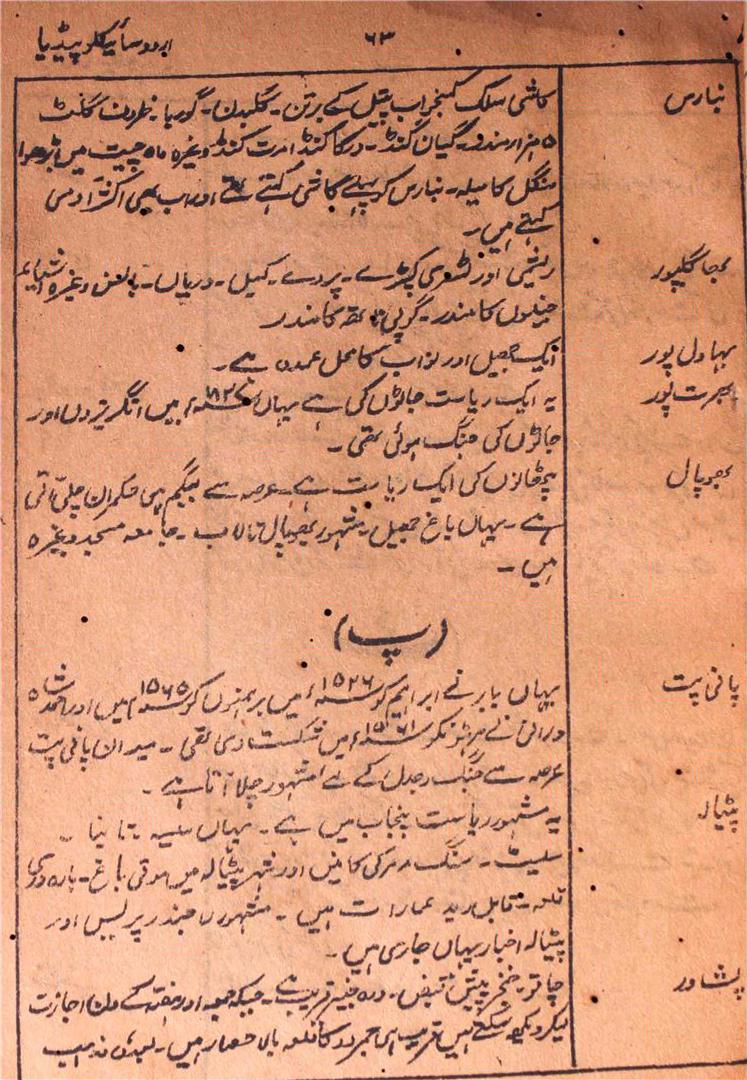 اردو سائیکلوپیڈیا
۶۳
بنارس
کاشی سلک کمخواب پیتل کے برتن۔ گلبدن۔
۵ ہزار مندر۔ گیان کنڈ۔ درگا کنڈ امرت کنڈ وغیرہ ماہ چیت میں بڑھوا
منگل کا میلہ۔ بنارس کو پہلے کاشی کہتے تھے اور اب بھی اکثر آدمی
کہتے ہیں۔
بھاگلپور
ریشمی اور ٹسری کپڑے۔ پردے۔ کمبل۔ دریاں۔ وغیرہ اشیاء
جینیوں کا مندر۔ گوپی ناتھ کا مندر
بہاول پور
ایک جھیل اور نواب کا محل عمدہ ہے۔
بھرت پور
یہ ایک ریاست جاٹوں کی ہے یہاں میں انگریزوں اور
جاٹوں کی جنگ ہوئی تھی۔
بھوپال
پٹھانوں کی ایک ریاست ہے۔ عرصہ سے بیگم ہی حکمران چلی آتی
ہے۔ یہاں باغ جھیل۔ مشہور بھوپال تالاب۔ جامعہ مسجد وغیرہ
ہیں۔
(پ)
پانی پت
یہاں بابر نے ابراہیم کو ۱۵۲۶ء میں کو ۱۵۶۵ء میں اور احمد شاہ
درانی نے مرہٹوں کو میں شکست دی تھی۔ میدان پانی پت
عرصہ سے جنگ و جدل کے لئے مشہور چلا آتا ہے۔
پٹیالہ
یہ مشہور ریاست پنجاب میں ہے۔ یہاں سیسہ تانبا۔
سلیٹ۔ سنگ مرمر کی کانیں اور شہر پٹیالہ میں موتی باغ۔ بارہ دری
قلعہ۔ قابل دید عمارات ہیں۔ مشہور راجندر پریس اور
پٹیالہ اخبار یہاں جاری ہیں۔
پشاور
چاقو۔ خنجر پیش قبض۔ درہ خیبر قریب ہے۔ جبکہ جمعہ اور ہفتہ کے دن اجازت
لیکر دیکھ سکتے ہیں قریب ہی جمرود کا قلعہ بالا حصار ہیں۔